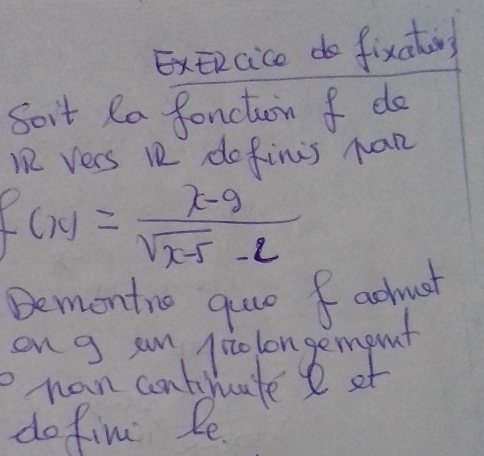 EXERcice de fixations
Soit la fonction f de
IR vers IR definis par
f(x) = x-9 / √x-5 - 2
Demontre que f admet
en 9 un prolongement
par continuité l et
defini le.